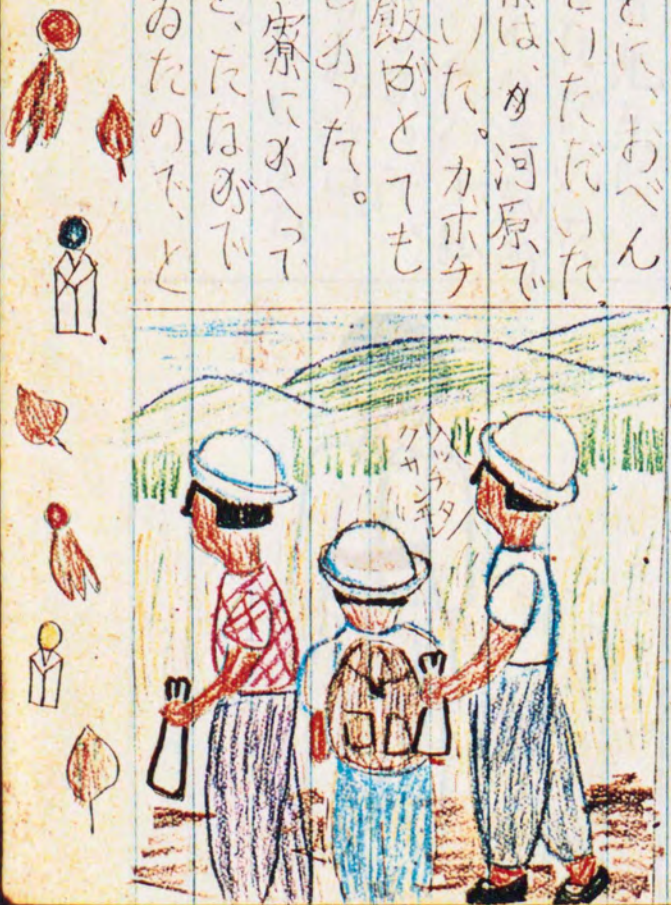 とに、おべん
といただいた。
は、河原で
いた。カボチ
飯がとても
しかった。
寮にかへって
と、たなかで
ゐたので、と